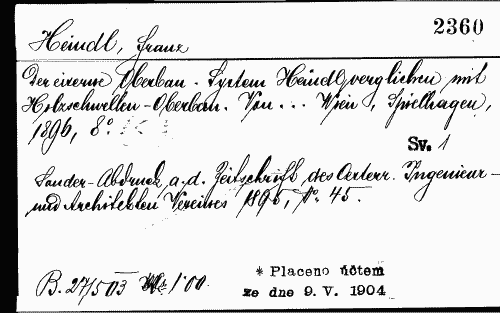 2360
Heindl, Franz
Der eiserne Oberbau. System Heindl verglichen mit
Holzschwellen-Oberbau. Von ... Wien, Spielhagen,
1896, 8°.
Sv. 1
Sonder-Abdruck a. d. Zeitschrift des österr. Ingenieur-
und Architekten Vereines 1895, No. 45.
B. 27/503 1.00
* Placeno účtem
ze dne 9. V. 1904